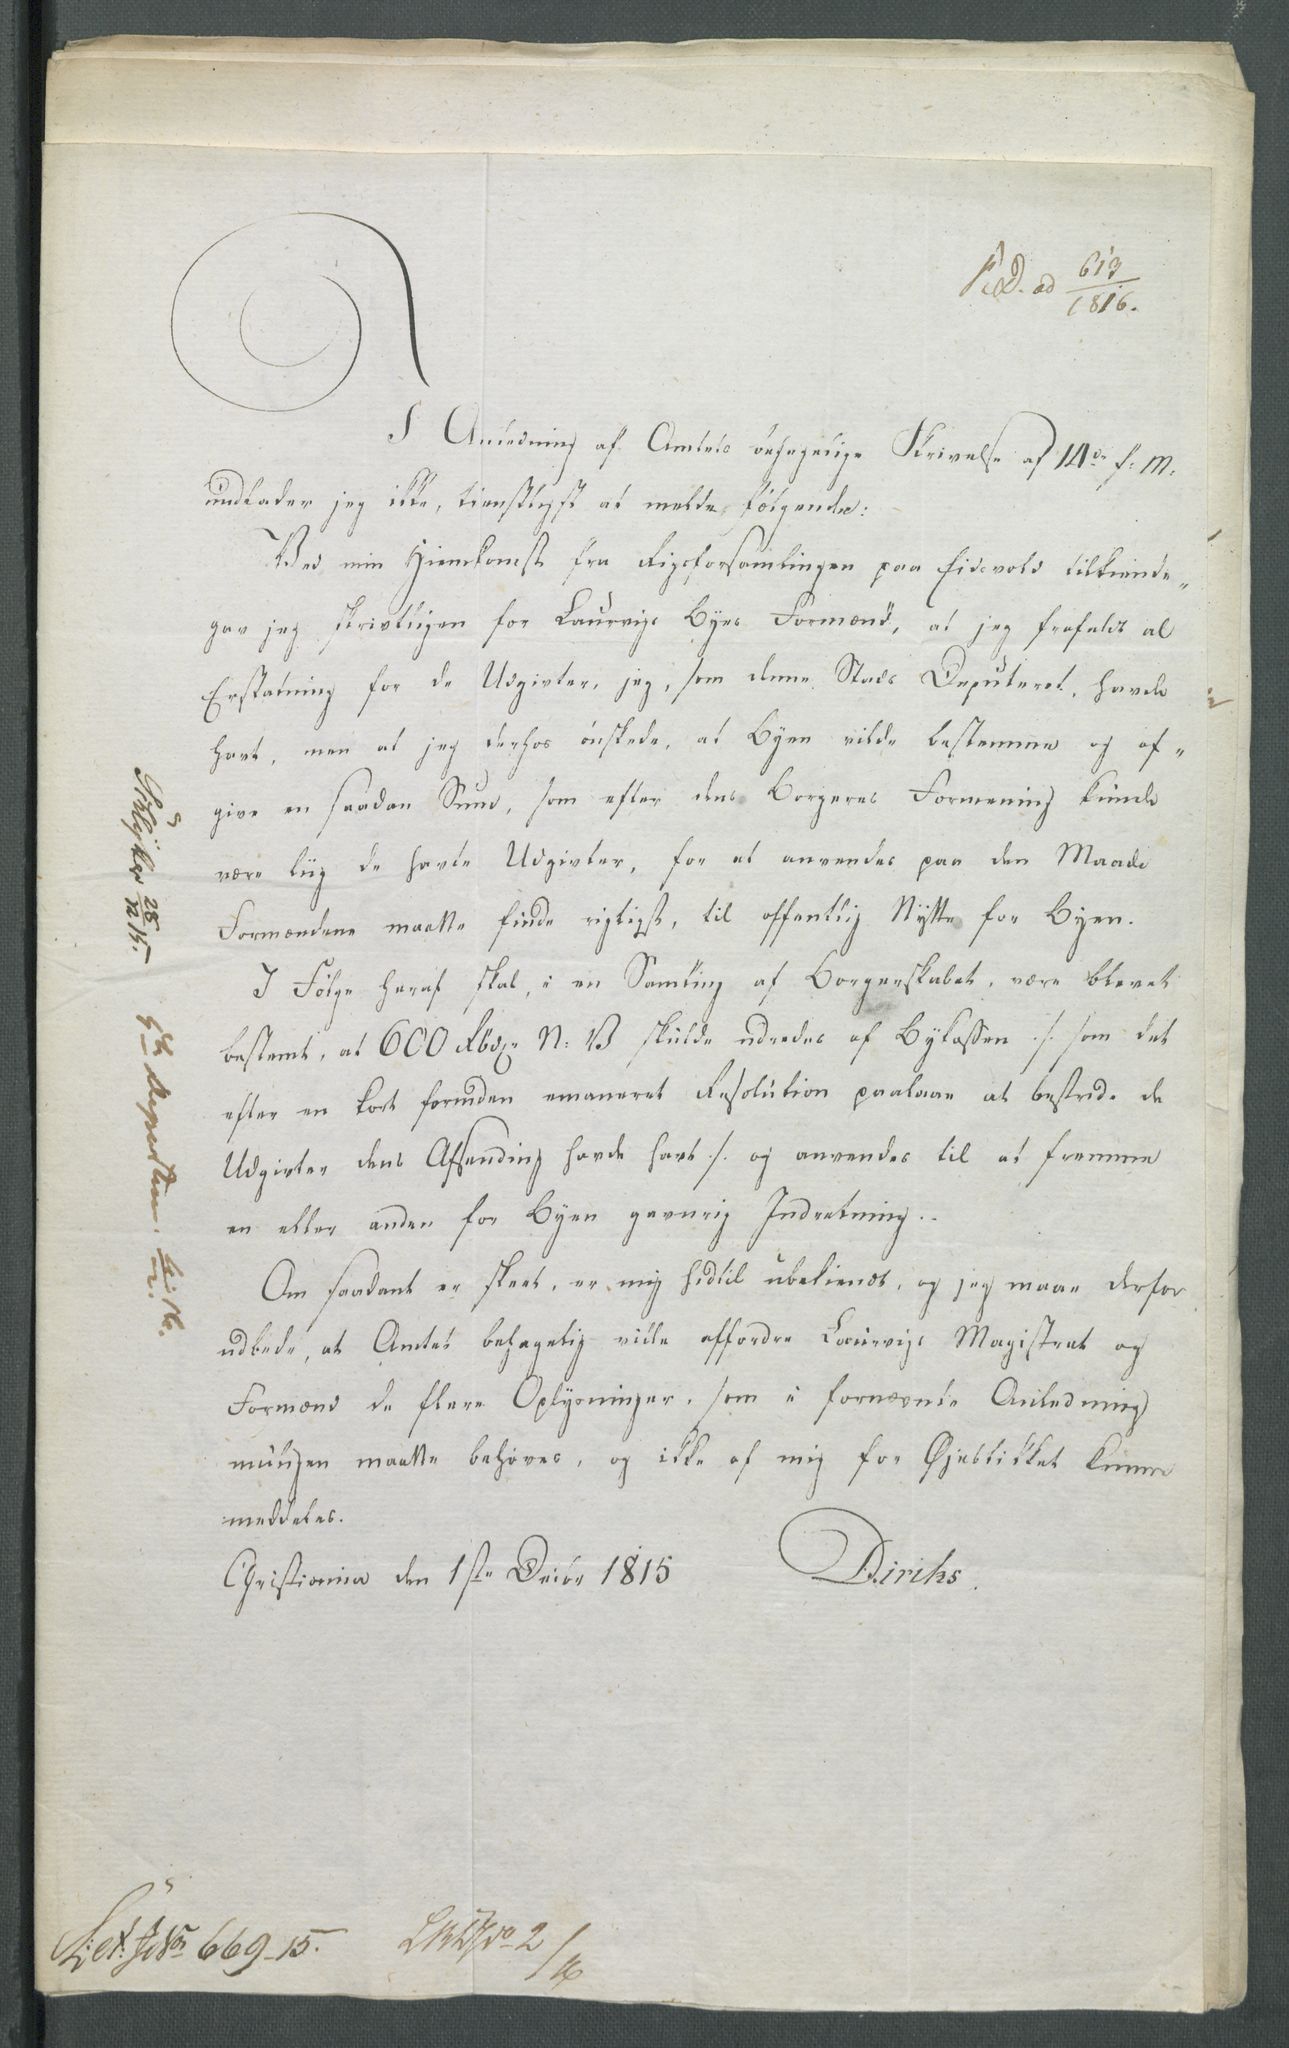 ad 613/1816.
I Anledning af Amtets behagelige Skrivelse af 14de f: M:
undlader jeg ikke, tienstligst at melde følgende:
Ved min Hiemkomst fra Rigsforsamlingen paa Eidsvold tilkiende-
gav jeg skrivtligen for Laurvigs Byes Formænd, at jeg frafaldt al
Erstatning for de Udgivter, jeg, som denne Stads Deputeret, havde
havt, men at jeg derhos ønskede, at Byen vilde bestemme og af-
give en saadan Sum, som efter dens Borgeres Formening kunde
være liig de havte Udgivter, for at anvendes paa den Maade
Formændene maatte finde rigtigst, til offentlig Nytte for Byen.
I Følge heraf skal, i en Samling af Borgerskabet, være blevet
bestemt, at 600 Rbdlr N: V skulde udredes af Bykassen ./. som det
efter en kort forinden emaneret Resolution paalaae at bestride de
Udgivter dens Afsending havde havt ./. og anvendes til at fremme
en eller anden for Byen gavnrig Indretning..
Om saadant er skeet, er mig hidtil ubekiendt, og jeg maae derfor
udbede, at Amtet behagelig ville affordre Laurvigs Magistrat og
Formænd de flere Oplysninger, som i fornævnte Anledning
muligen maatte behøves, og ikke af mig for Øjeblikket kunne
meddeles.
Christiania den 1ste Decbr 1815 Diriks.
28/12 15.
5te Departem.
669-15.
2/16